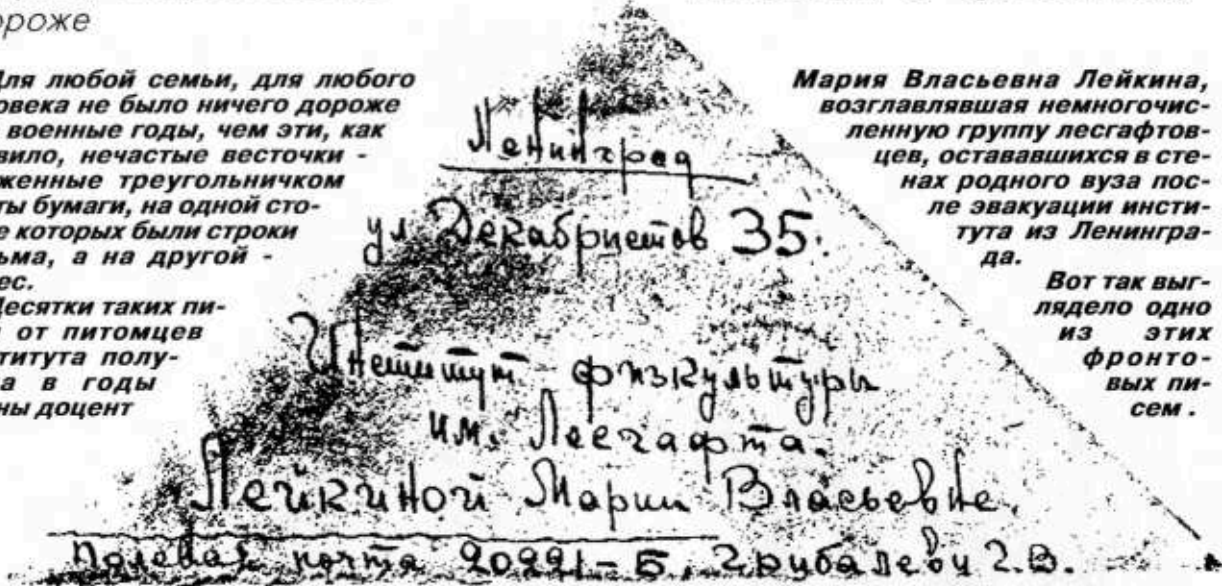 ороже
Для любой семьи, для любого
овека не было ничего дороже
военные годы, чем эти, как
вило, нечастые весточки -
женные треугольничком
ты бумаги, на одной сто-
е которых были строки
ьма, а на другой -
ес.
Десятки таких пи-
от питомцев
титута полу-
а в годы
ны доцент
Ленинград
ул Декабристов 35.
Институт физкультуры
им. Лесгафта.
Лейкиной Марии Власьевне.
Полевая почта 20221-Б,
Мария Власьевна Лейкина,
возглавлявшая немногочис-
ленную группу лесгафтов-
цев, остававшихся в сте-
нах родного вуза пос-
ле эвакуации инсти-
тута из Ленингра-
да.
Вот так выг-
лядело одно
из этих
фронто-
вых пи-
сем.